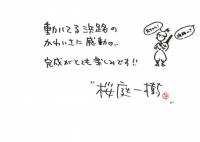 動いてる淡路の
かわいさに感動。
完成がとても楽しみです!!
桜庭一樹